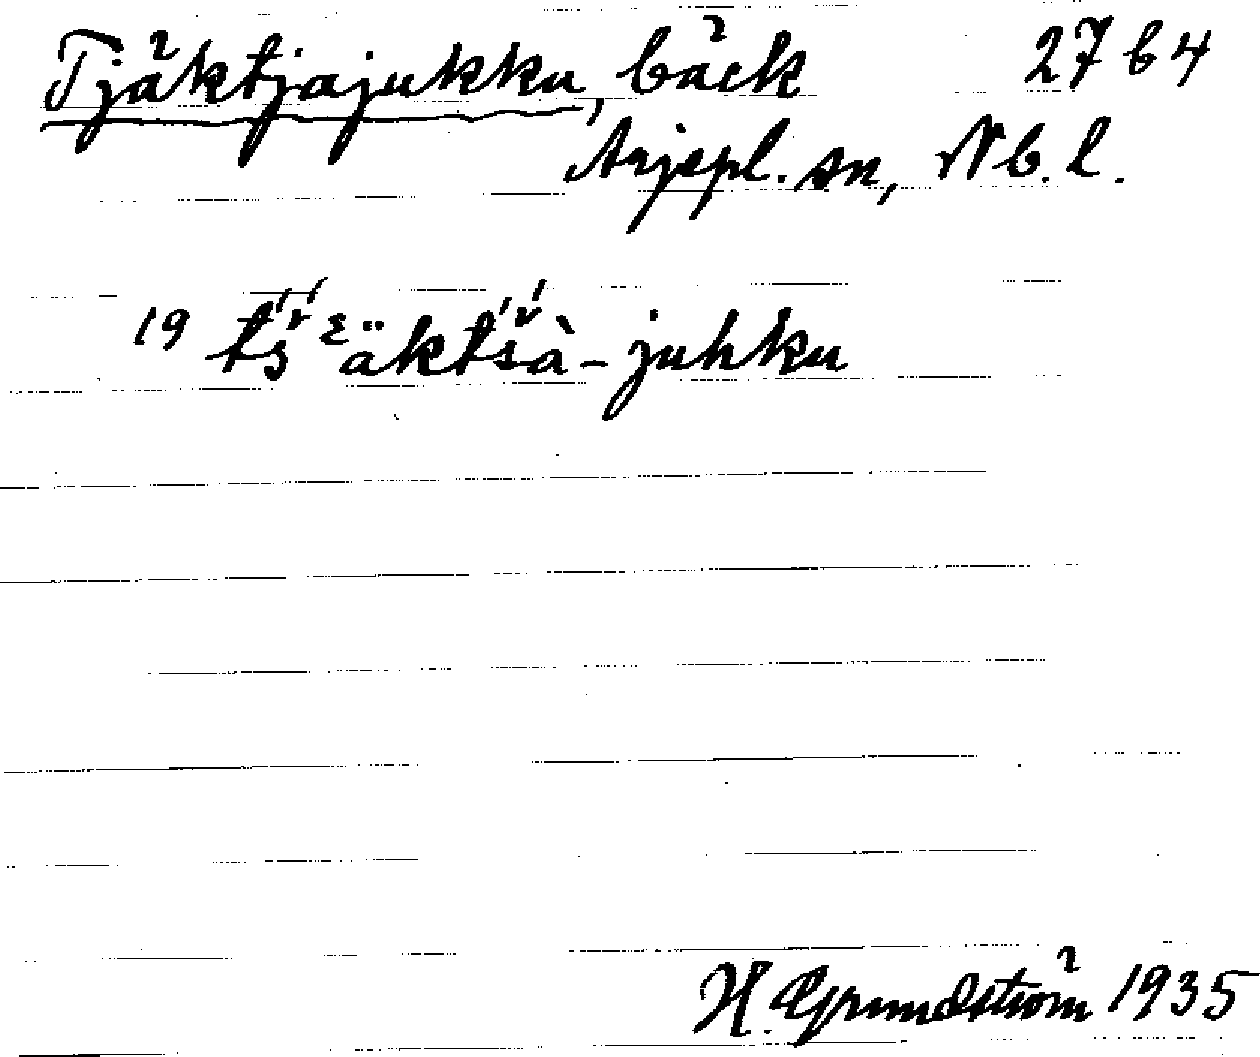 Tjäktjajukku, bäck 27 b 4
Arjepl. sn, Nb. l.
19 t́š́ᵋäkt́š́à-juhku
H. Grundström 1935